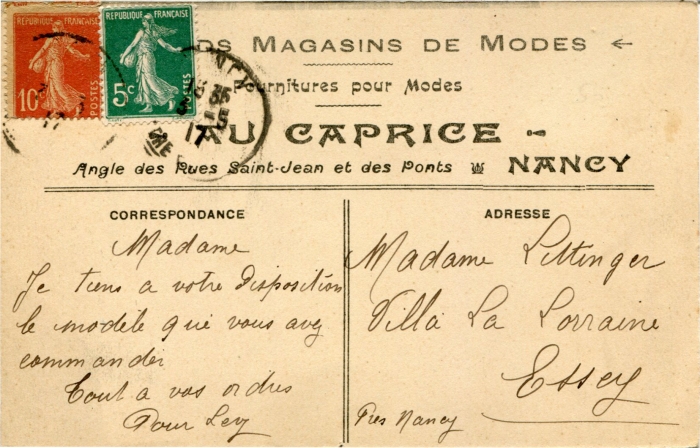 RÉPUBLIQUE FRANÇAISE
10c POSTES
RÉPUBLIQUE FRANÇAISE
5c POSTES
DS MAGASINS DE MODES
Fournitures pour Modes
AU CAPRICE
Angle des Rues Saint-Jean et des Ponts NANCY
CORRESPONDANCE
Madame
Je tiens a votre Disposition
le modèle que vous avez
commander
Tout a vos ordres
Pour Levy
ADRESSE
Madame Littinger
Villa La Lorraine
Essey
Près Nancy